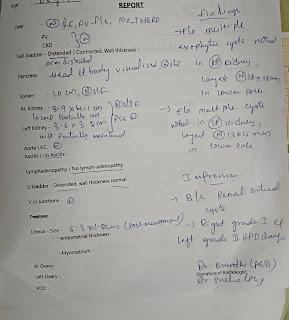 Age
REPORT
Findings
Liver - (N) S/E, NO FL's, NO IHBRD
PV
CBD } (N)
→ E/o multiple
exophytic cysts noted
Gall bladder - Distended / Contracted, Wall thickness -
over distended
in (R) kidney,
Pancreas - Head & body visualised (N) S/E
largest
in lower pole
Spleen - 10 cm, (N) S/E
Rt. Kidney - 8.9 x 4.1 cm } (N) S/E
CMD Partially lost
PCS (N)
→ E/o multiple cysts
noted in (L) kidney,
Left Kidney - 8.6 x 3.8 cm
CMD Partially maintained
largest (N) 13x15 mm
Aorta / IVC - (N)
in lower pole
Ascitis / no Ascitis -
Lymphadenopathy / No lymph-adenopathy
Impression
U.bladder - Distended, wall thickness normal
→ B/L Renal cortical
cysts
V-U junctions - (N)
Prostate -
→ Right grade I &
Uterus - Size - 5.3 x 1.8 cm (Post-menopausal)
left grade II RPD changes
-endometrial thickness-
-Myometrium -
Rt Ovary-
Left Ovary -
Signature of Radiologist
POD -